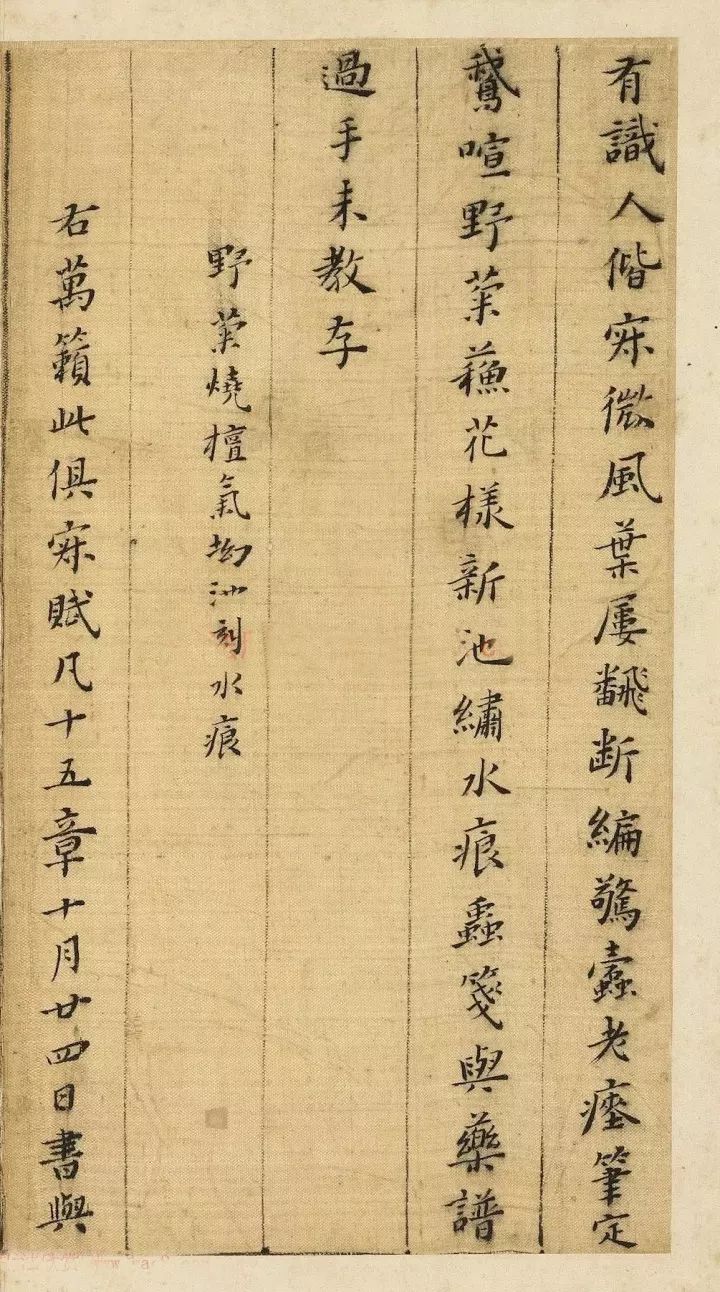 有識人偕寐微風葉屢飜断編驚蠹老瘞筆定
鵞喧野菜蘓花様新池繡水痕蟲箋與藥譜
過手未教存
野菜燒檀氣坳池刻水痕
右萬籟此俱寐賦凡十五章十月廿四日書與